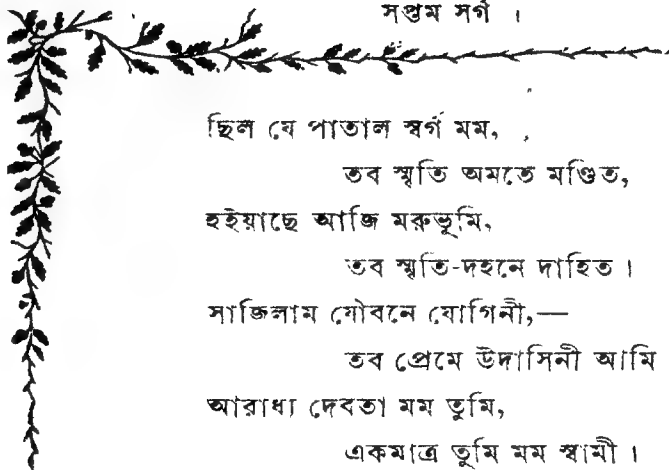 সপ্তম সর্গ ।
ছিল যে পাতাল স্বর্গ মম,
তব স্মৃতি অমতে মণ্ডিত,
হইয়াছে আজি মরুভূমি,
তব স্মৃতি-দহনে দাহিত ।
সাজিলাম যৌবনে যোগিনী,—
তব প্রেমে উদাসিনী আমি
আরাধ্য দেবতা মম তুমি,
একমাত্র তুমি মম স্বামী ।